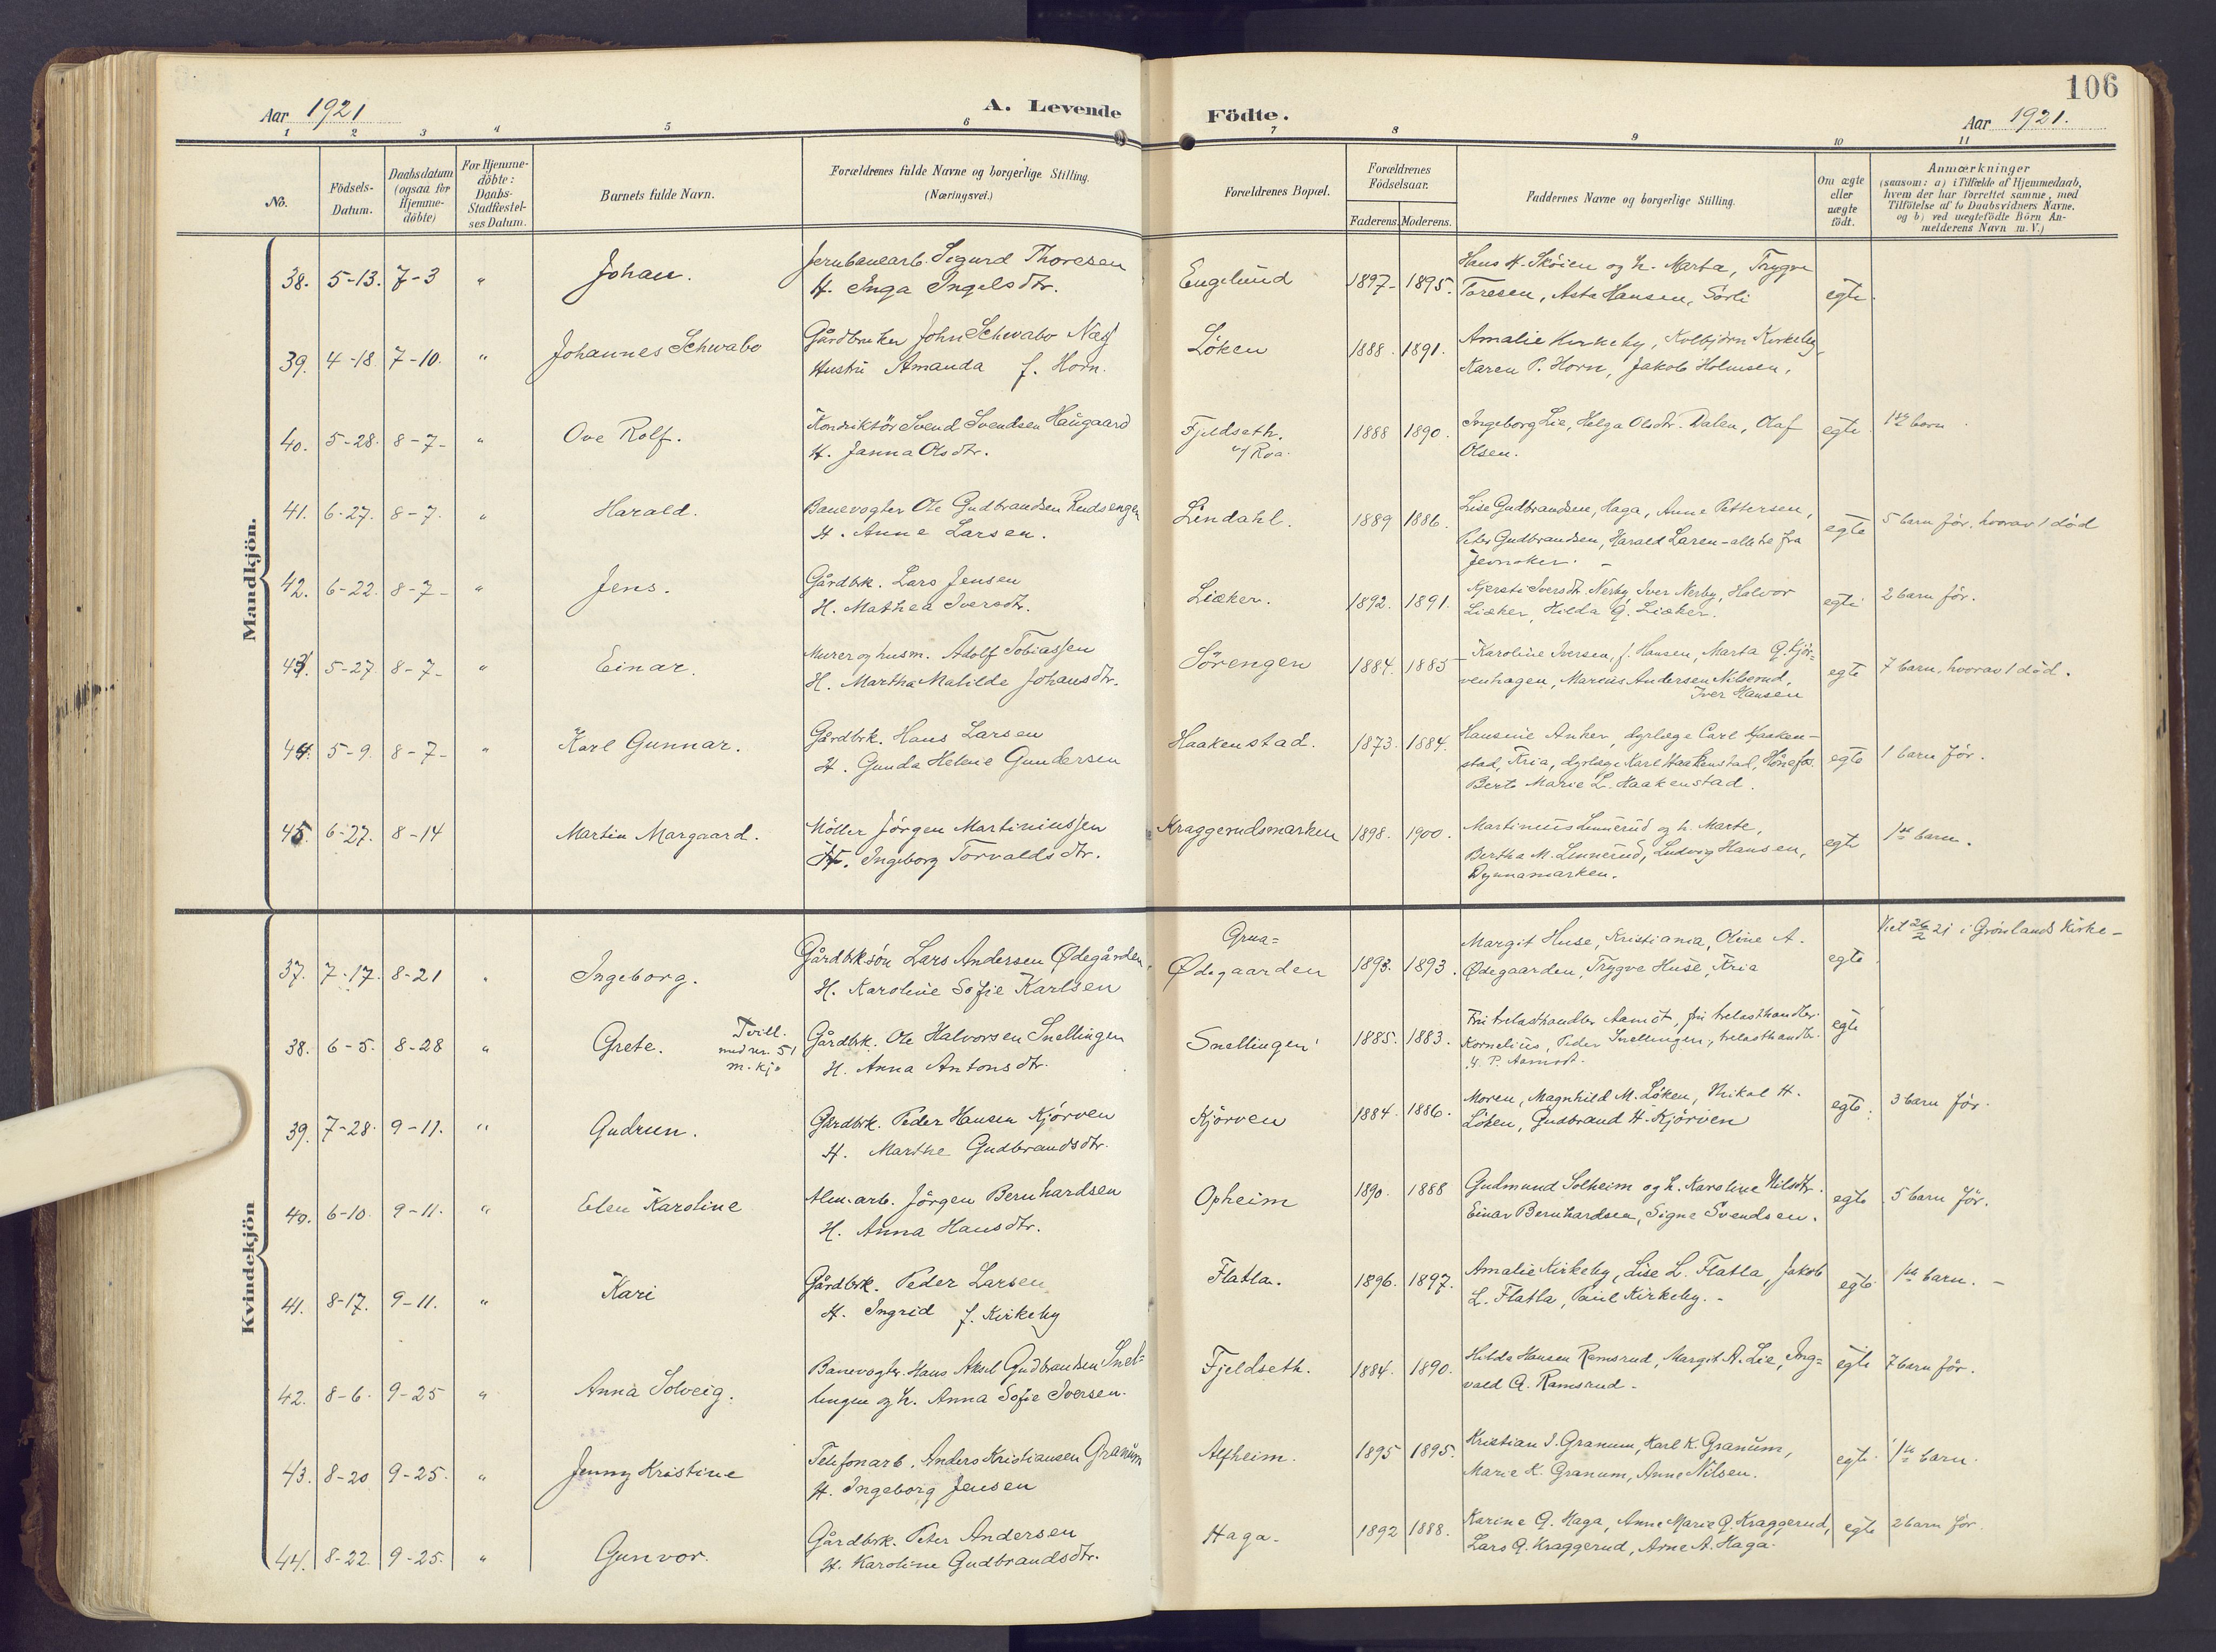 106
Aar 1921
A. Levende Födte.
Aar 1921.
1 2 3 4 5 6 7 8 9 10 11
No.
Födsels-
Datum.
Daabsdatum
(ogsaa for
Hjemme-
döbte)
For Hjemme-
döbte:
Daabs-
Stadfæstel-
ses Datum.
Barnets fulde Navn.
Forældrenes fulde Navne og borgerlige Stilling.
(Næringsvei.)
Forældrenes Bopæl.
Forældrenes
Födselsaar.
Faderens. Moderens.
Faddernes Navne og borgerlige Stilling.
Om ægte
eller
uægte
födt.
Anmærkninger
(saasom: a) i Tilfælde af Hjemmedaab,
hvem der har forrettet samme, med
Tilföielse af to Daabsvidners Navne.
og b) ved uægtefödte Börn An-
melderens Navn m. V.)
Mandkjön.
38. 5-13. 7-3 " Johan.
Jernbanearb. Sigurd Thoresen
H. Inga Ingelsdtr.
Engelund 1897- 1895.
Hans H. Sköien og h. Marta, Trygve
Toresen, Asta Hansen, Sörli
egte.
39. 4-18 7-10. " Johannes Schwabo
Gårdbruker John Schwabo Næss
Hustru Amanda f. Horn.
Löken 1888. 1891.
Amalie Kirkeby, Kolbjörn Kirkeby,
Karen P. Horn, Jakob Holmsen,
40. 5-28. 8-7- " Ove Rolf.
Konduktör Svend Svendsen Haugaard
H. Janna Olsdtr.
Fjeldseth.
v/ Roa.
1888 1890.
Ingeborg Lie, Helga Olsdtr. Dalen, Olaf
Olsen.
egte 1ste barn.
41. 6-27. 8-7. " Harald.
Banevogter Ole Gudbrandsen Rudsengen
H. Anne Larsen.
Lindahl. 1889 1886.
Lise Gudbrandsen, Haga, Anne Pettersen,
Peter Gudbrandsen, Harald Larsen - alle tre fra
Jevnaker. -
egte 5 barn för, hvorav 1 död
42. 6-22. 8-7- " Jens.
Gårdbrk. Lars Jensen
H. Mathea Iversdtr.
Liaker. 1892. 1891.
Kjersti Iversdt. Nerby, Iver Nerby, Halvor
Liaker, Hilda G. Liaker.
egte 2 barn för.
43. 5-27 8-7- " Einar.
Murer og husm. Adolf Tobiassen
H. Martha Matilde Johansdtr.
Sörengen 1884. 1885
Karoline Iversen, f. Hansen, Marta G. Kjör-
venhagen, Marcus Andersen Nilserud,
Iver Hansen
egte 7 barn, hvorav 1 död.
44. 5-9. 8-7- " Karl Gunnar.
Gårdbrk. Hans Larsen
H. Gunda Helvie Gundersen
Haakenstad. 1873. 1884.
Hansine Anker, dyrlæge Carl Haaken-
stad, Kria, dyrlæge Karl Haakenstad, Hönefos.
Berte Marie L. Haakenstad.
egte 1 barn för.
45. 6-27. 8-14 Martin Margaard.
Möller Jörgen Martiniussen
H. Ingeborg Torvaldsdtr.
Kraggerudsmarken 1898. 1900.
Martinius Linnerud og h. Marte,
Bertha M. Linnerud, Ludvig Hansen,
Dynnamarken.
egte 1ste barn.
Kvindekjön
37. 7-17. 8-21 " Ingeborg.
Gårdbrk.sön Lars Andersen Ødegården,
H. Karoline Sofie Karlsen
Grua=
Ødegaarden 1893. 1893.
Margit Huse, Kristiania, Oline A.
Ødegaarden, Trygve Huse, Kria
egte. Viet 26/2 21 i Grönlands Kirke -
38. 6-5. 8-28 " Grete.
Tvill.
med nr. 51
m. kj.
Gårdbrk. Ole Halvorsen Snellingen
H. Anna Antonsdtr.
Snellingen 1885. 1883.
Fru trelasthandler Aamot, fru trelasthandler
Kornelius, Peder Snellingen, trelasthandler
H. P. Aamodt.
egte
39. 7-28. 9-11. " Gudrun.
Gårdbrk. Peder Hansen Kjörven
H. Marthe Gudbrandsdtr.
Kjörven 1884. 1886.
Moren, Magnhild M. Löken, Mikal H.
Löken, Gudbrand H. Kjörven
egte. 3 barn för.
40. 6-10. 9-11. " Elen Karoline
Alm. arb. Jörgen Bernhardsen
H. Anna Hansdtr.
Opheim 1890. 1888
Gudmund Solheim og h. Karoline Nilsdtr.
Einar Bernhardsen, Signe Svendsen.
egte 5 barn för.
41. 8-17. 9-11. " Kari
Gårdbrk. Peder Larsen
H. Ingrid f. Kirkeby
Flatla. 1896. 1897.
Amalie Kirkeby, Lise L. Flatla, Jakob
L. Flatla, Paul Kirkeby. -
egte 1ste barn. -
42. 8-6. 9-25 " Anna Solveig.
Banevogter Hans Aksel Gudbrandsen Snel-
lingen og h. Anna Sofie Iversen.
Fjeldseth. 1884. 1890.
Hilda Hansen Ramsrud, Margit A. Lie, Ing=
vald G. Ramsrud.
egte 7 barn för.
43. 8-20 9-25. " Jenny Kristine
Telefonarb. Anders Kristiansen Granum
H. Ingeborg Jensen
Alfheim. 1895 1895.
Kristian J. Granum, Karl K. Granum,
Marie K. Granum, Anne Nilsen.
egte 1ste barn.
44. 8-22. 9-25. " Gunvor.
Gårdbrk. Peter Andersen
H. Karoline Gudbrandsdtr.
Haga. 1892 1888.
Karine G. Haga, Anne Marie G. Kraggerud,
Lars G. Kraggerud, Arne A. Haga.
egte 2 barn för.